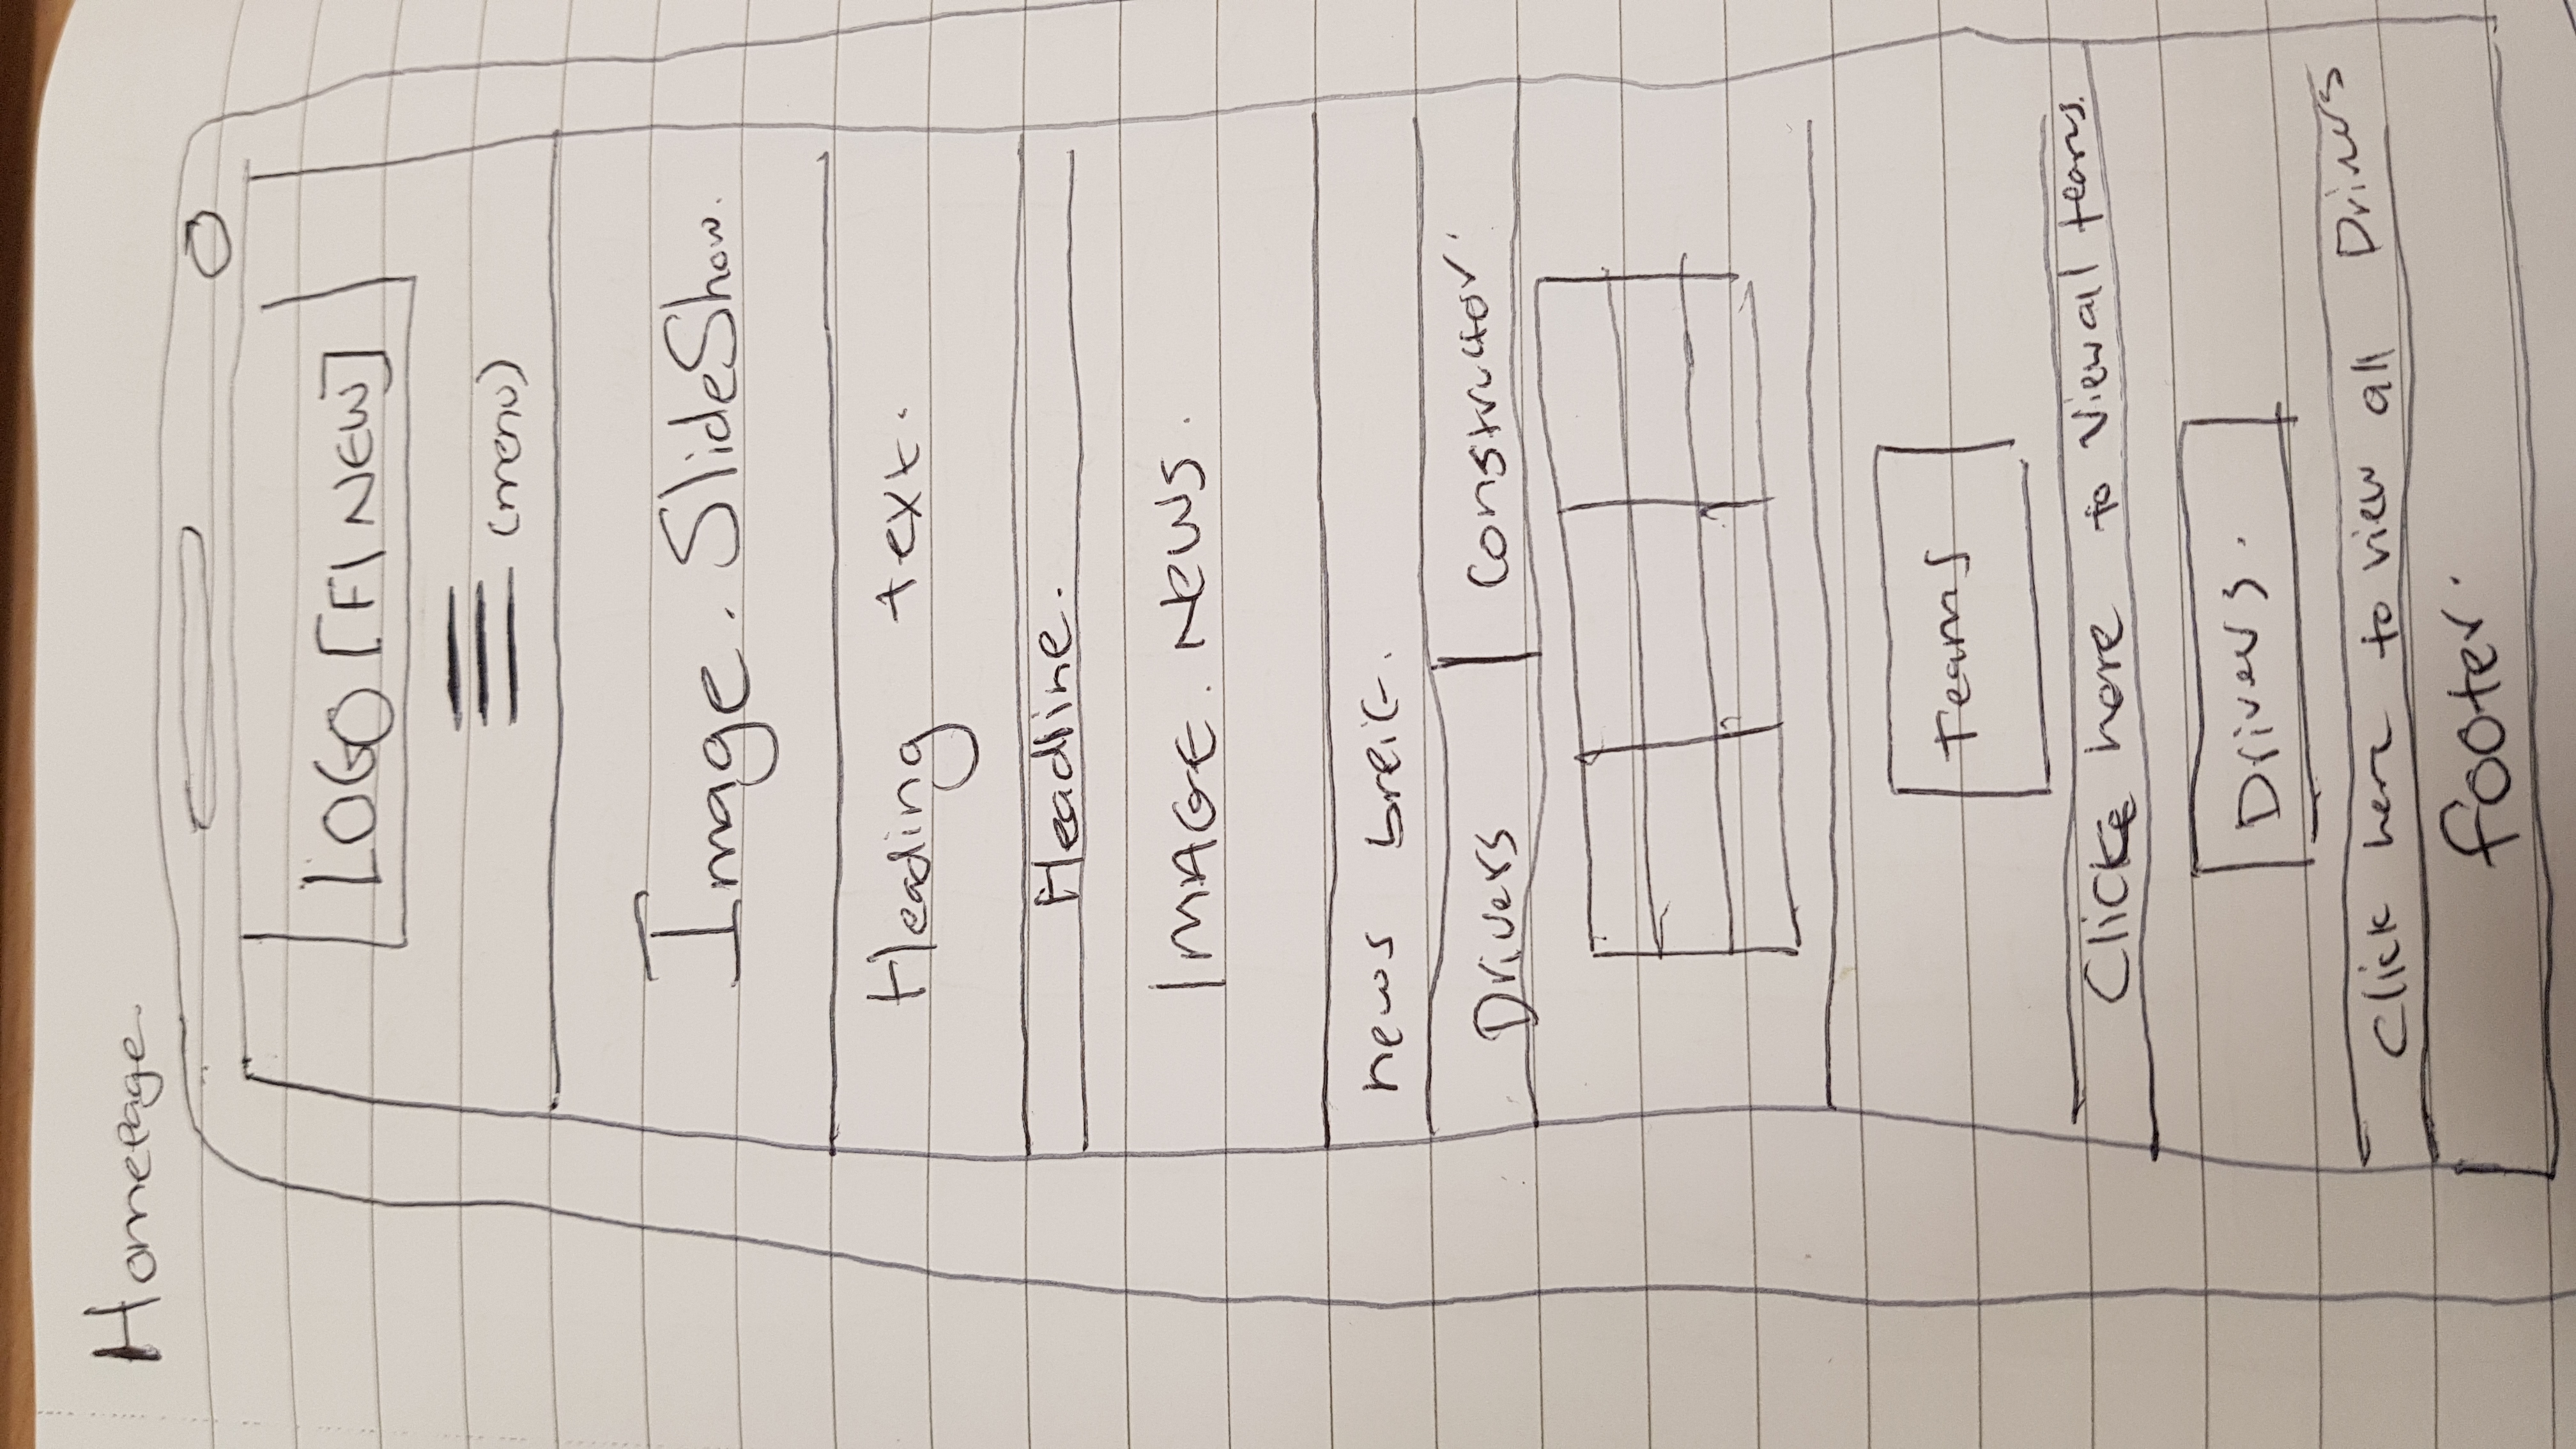 Homepage
LOGO [F1 NEW]
(menu)
Image. SlideShow.
Heading text.
Headline.
IMAGE. NEWS.
news breif.
Drivers Constructor.
Teams
Click here to View all teams.
Drivers.
Click here to view all Drivers
footer.